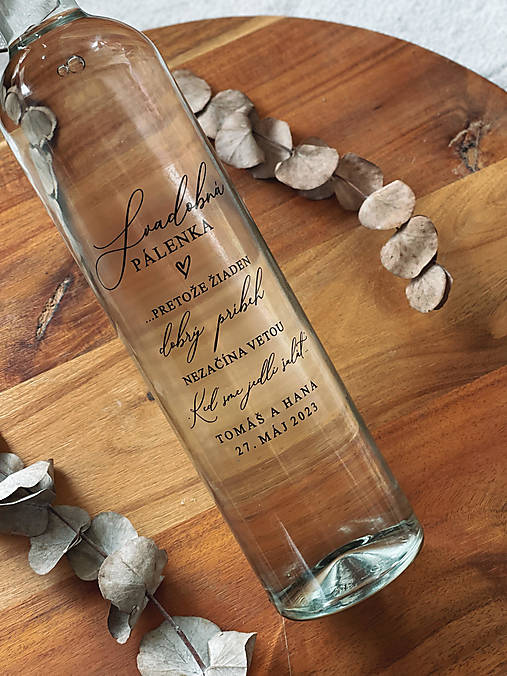 Svadobná
PÁLENKA
...PRETOŽE ŽIADEN
dobrý príbeh
NEZAČÍNA VETOU
"Keď sme jedli šalát."
TOMÁŠ A HANA
27. MÁJ 2023